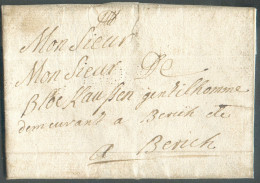 Monsieur
Monsieur De
gentilhomme
demeurant a Berich et
a Berich